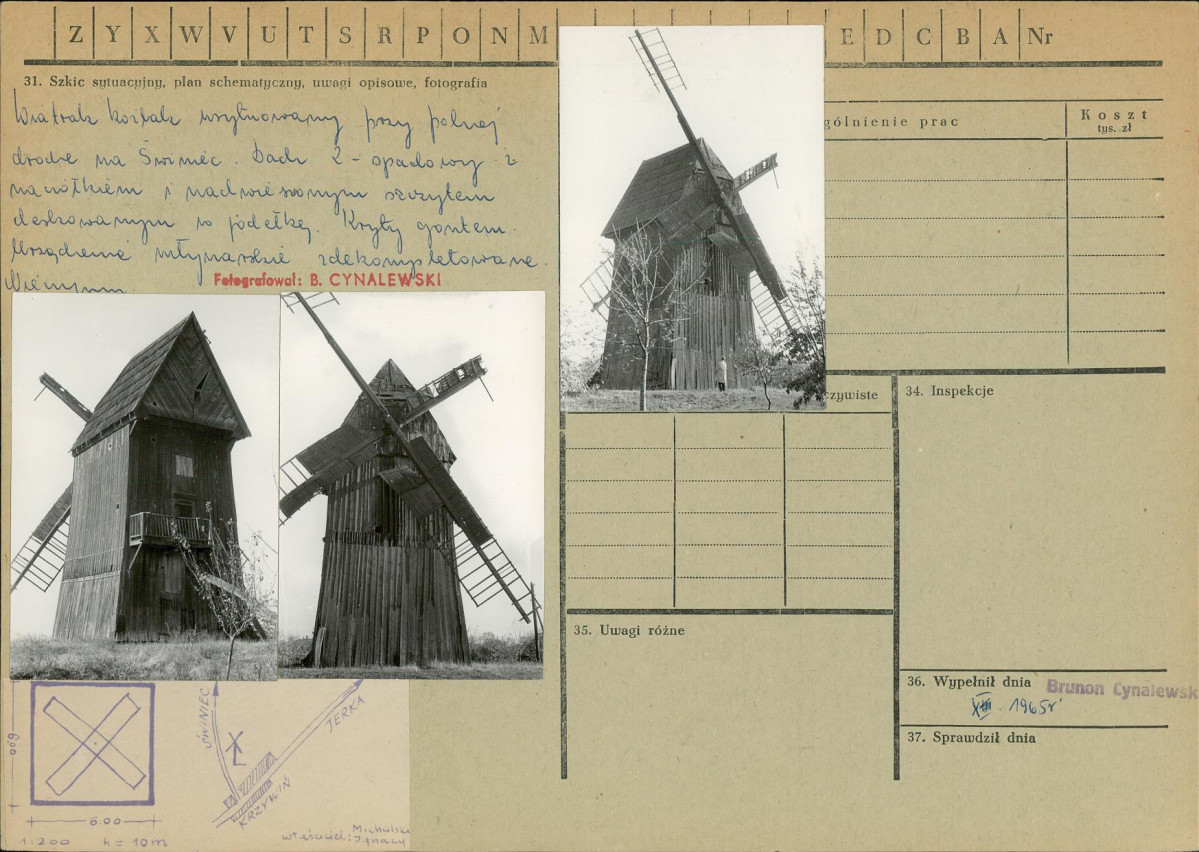 Z Y X W V U T S R P O N M E D C B A Nr
31. Szkic sytuacyjny, plan schematyczny, uwagi opisowe, fotografia
Wiatrak koźlak usytuowany przy polnej
drodze na Świniec. Dach 2-spadowy z
naczółkiem i nadwieszonym szczytem
deskowanym w jodełkę. Kryty gontem.
Urządzenie młynarskie zdekompletowane.
Fotografował: B. CYNALEWSKI
gólnienie prac
Koszt
tys. zł
czywiste
34. Inspekcje
35. Uwagi różne
36. Wypełnił dnia Brunon Cynalewsk
1965r
37. Sprawdził dnia
ŚWINIEC
JERKA
KRZYWIŃ
600
6.00
1:200 h = 10m
właściciel: Michalski
Ignacy